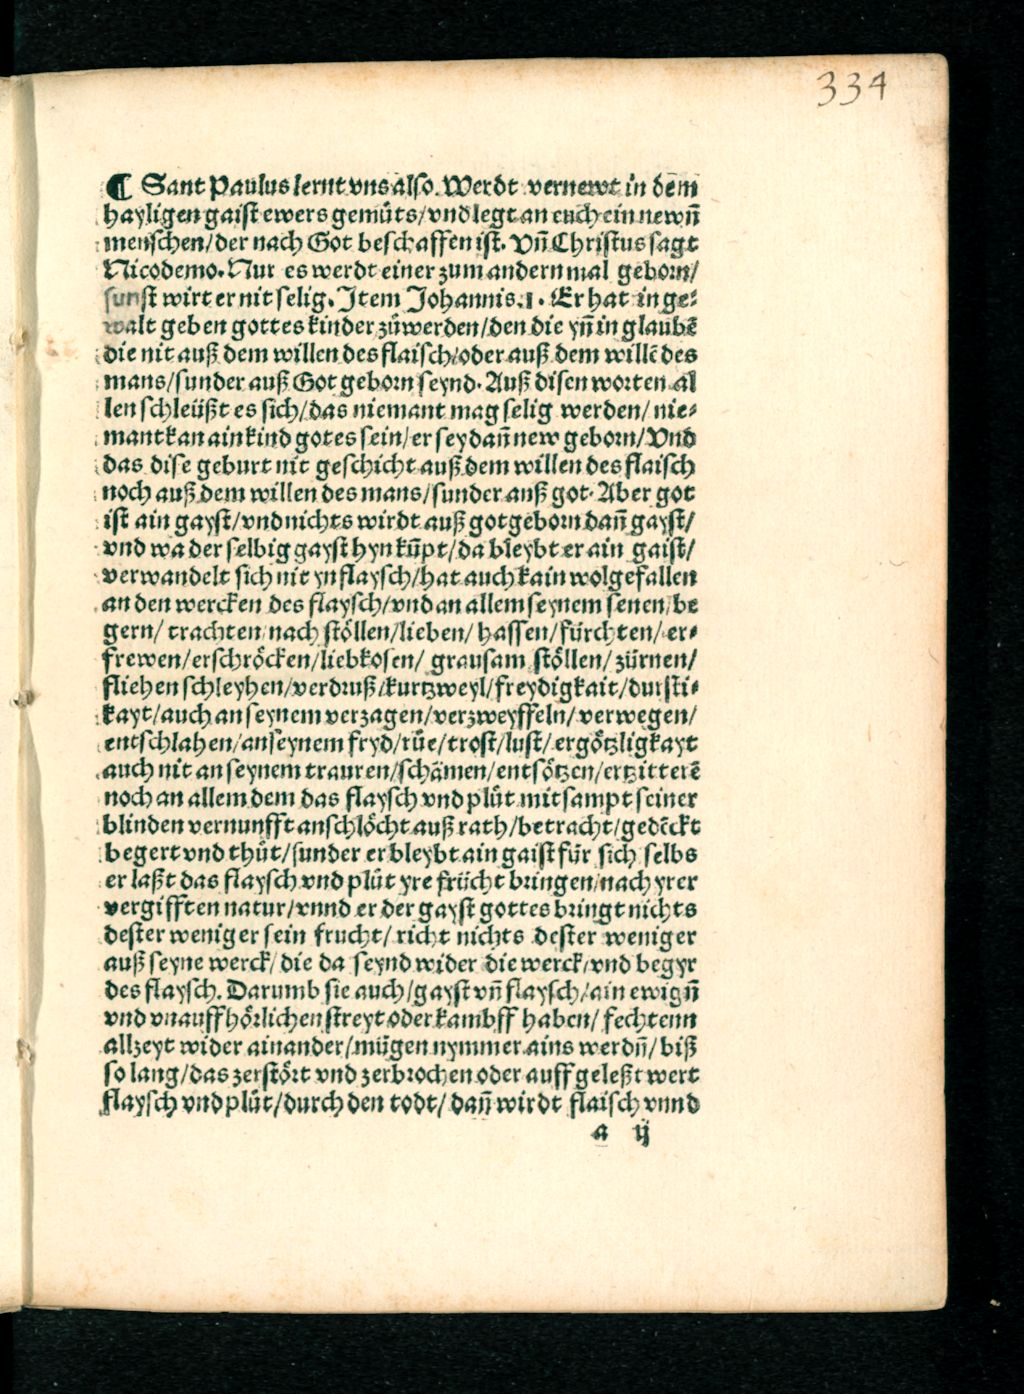 334
¶ Sant Paulus lernt vns also. Werdt vernewt in dem
hayligen gaist ewers gemüts/vnd legt an euch ein newñ
menschen/der nach Got beschaffen ist. Vñ Christus sagt
Nicodemo. Nur es werdt einer zum andern mal geborn/
sunst wirt er nit selig. Item Johannis.1. Er hat in ge⸗
walt geben gottes kinder zůwerden/den die yñ in glaubē
die nit auß dem willen des flaisch/oder auß dem willē des
mans/sunder auß Got geborn seynd. Auß disen worten al
len schleüßt es sich/das niemant mag selig werden/nie⸗
mant kan ain kind gotes sein/er sey dañ new geborn/Vnd
das dise geburt nit geschicht auß dem willen des flaisch
noch auß dem willen des mans/sunder auß got. Aber got
ist ain gayst/vnd nichts wirdt auß got geborn dañ gayst/
vnd wa der selbig gayst hyn kūpt/da bleybt er ain gaist/
verwandelt sich nit yn flaysch/hat auch kain wolgefallen
an den wercken des flaysch/vnd an allem seynem senen/be
gern/trachten nach stöllen/lieben/hassen/fürchten/er⸗
frewen/erschröcken/liebkosen/grausam stöllen/zürnen/
fliehen schleyhen/verdruß/kurtzweyl/freydigkait/dursti⸗
kayt/auch an seynem verzagen/verzweyffeln/verwegen/
entschlahen/an seynem fryd/růe/trost/lust/ergötzligkayt
auch nit an seynem trauren/schämen/entsötzen/ertzitterē
noch an allem dem das flaysch vnd plůt mitsampt seiner
blinden vernunfft anschlöcht auß rath/betracht/gedēckt
begert vnd thůt/sunder er bleybt ain gaist für sich selbs
er laßt das flaysch vnd plůt yre frücht bringen/nach yrer
vergifften natur/vnnd er der gayst gottes bringt nichts
dester weniger sein frucht/richt nichts dester weniger
auß seyne werck/die da seynd wider die werck/vnd begyr
des flaysch. Darumb sie auch/gayst vñ flaysch/ain ewigñ
vnd vnauffhörlichen streyt oder kambff haben/fechtenn
allzeyt wider ainander/mügen nymmer ains werdñ/biß
so lang/das zerstört vnd zerbrochen oder auffgeleßt wert
flaysch vnd plůt/durch den todt/dañ wirdt flaisch vnnd
a ij